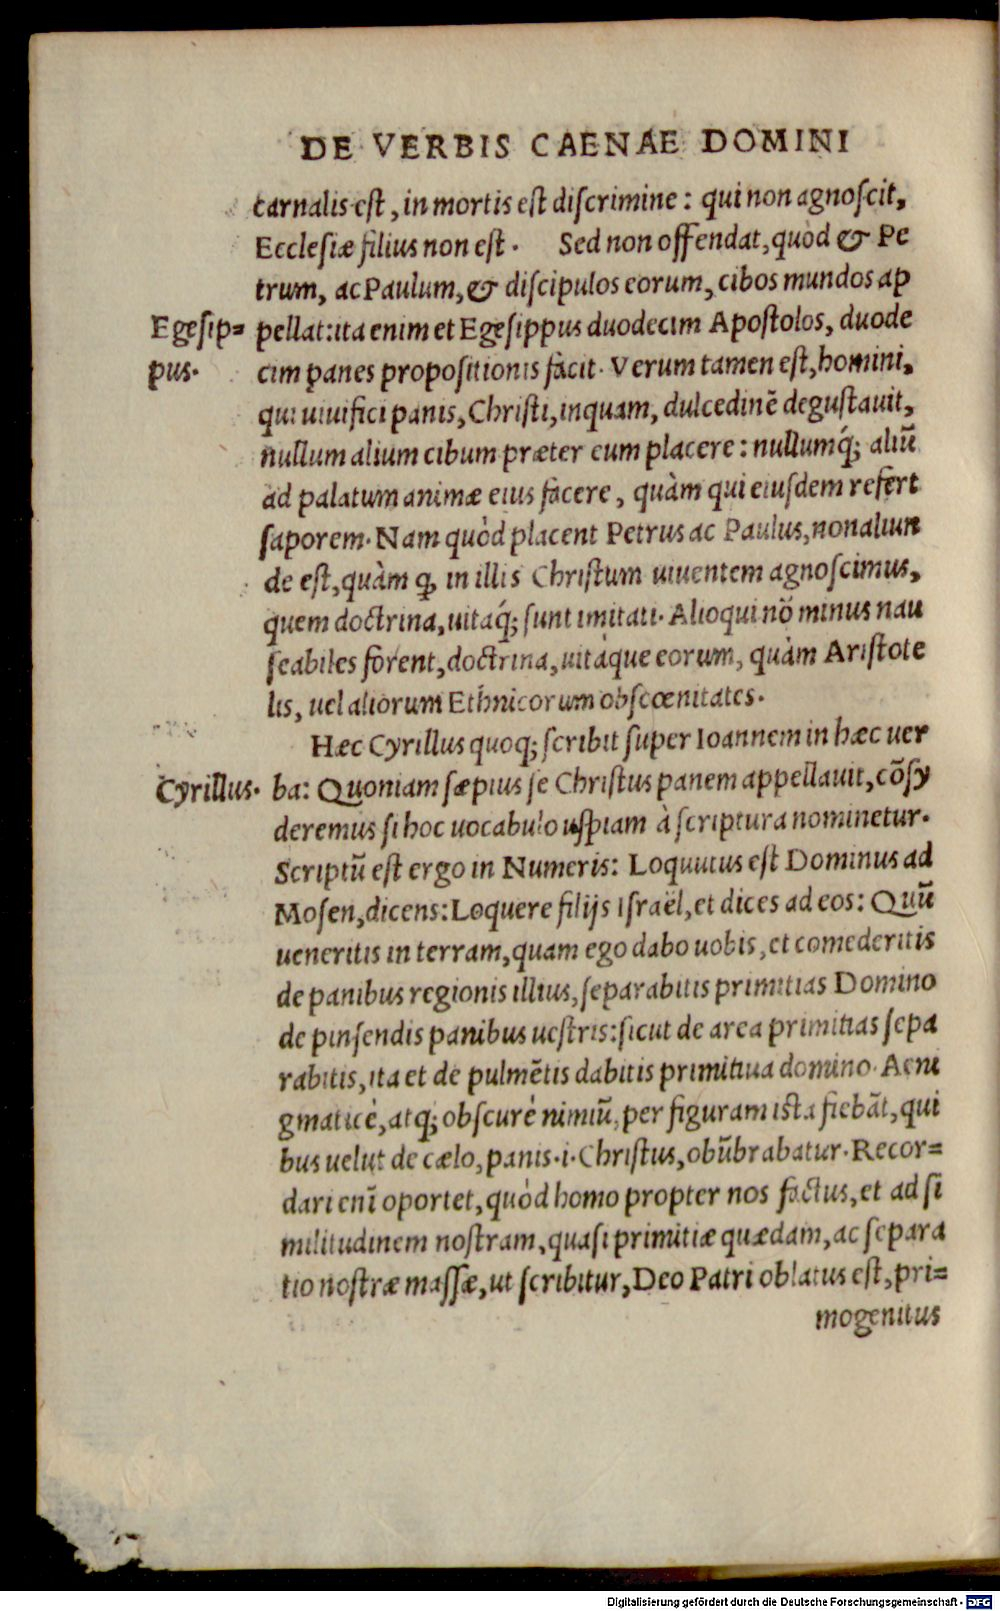 DE VERBIS CAENAE DOMINI
carnalis est, in mortis est discrimine: qui non agnoscit,
Ecclesiæ filius non est. Sed non offendat, quòd & Pe
trum, ac Paulum, & discipulos eorum, cibos mundos ap
Egesip=
pellat: ita enim et Egesippus duodecim Apostolos, duode
pus.
cim panes propositionis facit. Verum tamen est, homini,
qui uiuifici panis, Christi, inquam, dulcedinē degustauit,
nullum alium cibum præter eum placere: nullumq́; aliū
ad palatum animæ eius facere, quàm qui eiusdem refert
saporem. Nam quòd placent Petrus ac Paulus, non aliun
de est, quàm ꝙ in illis Christum uiuentem agnoscimus,
quem doctrina, uitaq́; sunt imitati. Alioqui nō minus nau
seabiles forent, doctrina, uitáque eorum, quàm Aristote
lis, uel aliorum Ethnicorum obscœnitates.
Hæc Cyrillus quoq; scribit super Ioannem in hæc uer
Cyrillus.
ba: Quoniam sæpius se Christus panem appellauit, cōsy
deremus si hoc uocabulo uspiam à scriptura nominetur.
Scriptū est ergo in Numeris: Loquutus est Dominus ad
Mosen, dicens: Loquere filijs Israël, et dices ad eos: Quū
ueneritis in terram, quam ego dabo uobis, et comederitis
de panibus regionis illius, separabitis primitias Domino
de pinsendis panibus uestris: sicut de area primitias sepa
rabitis, ita et de pulmētis dabitis primitiua domino. Aeni
gmaticè, atq; obscurè nimiū, per figuram ista fiebāt, qui
bus uelut de cælo, panis .i. Christus, obūbrabatur. Recor=
dari enī oportet, quòd homo propter nos factus, et ad si
militudinem nostram, quasi primitiæ quædam, ac separa
tio nostræ massæ, ut scribitur, Deo Patri oblatus est, pri=
mogenitus
Digitalisierung gefördert durch die Deutsche Forschungsgemeinschaft - DFG